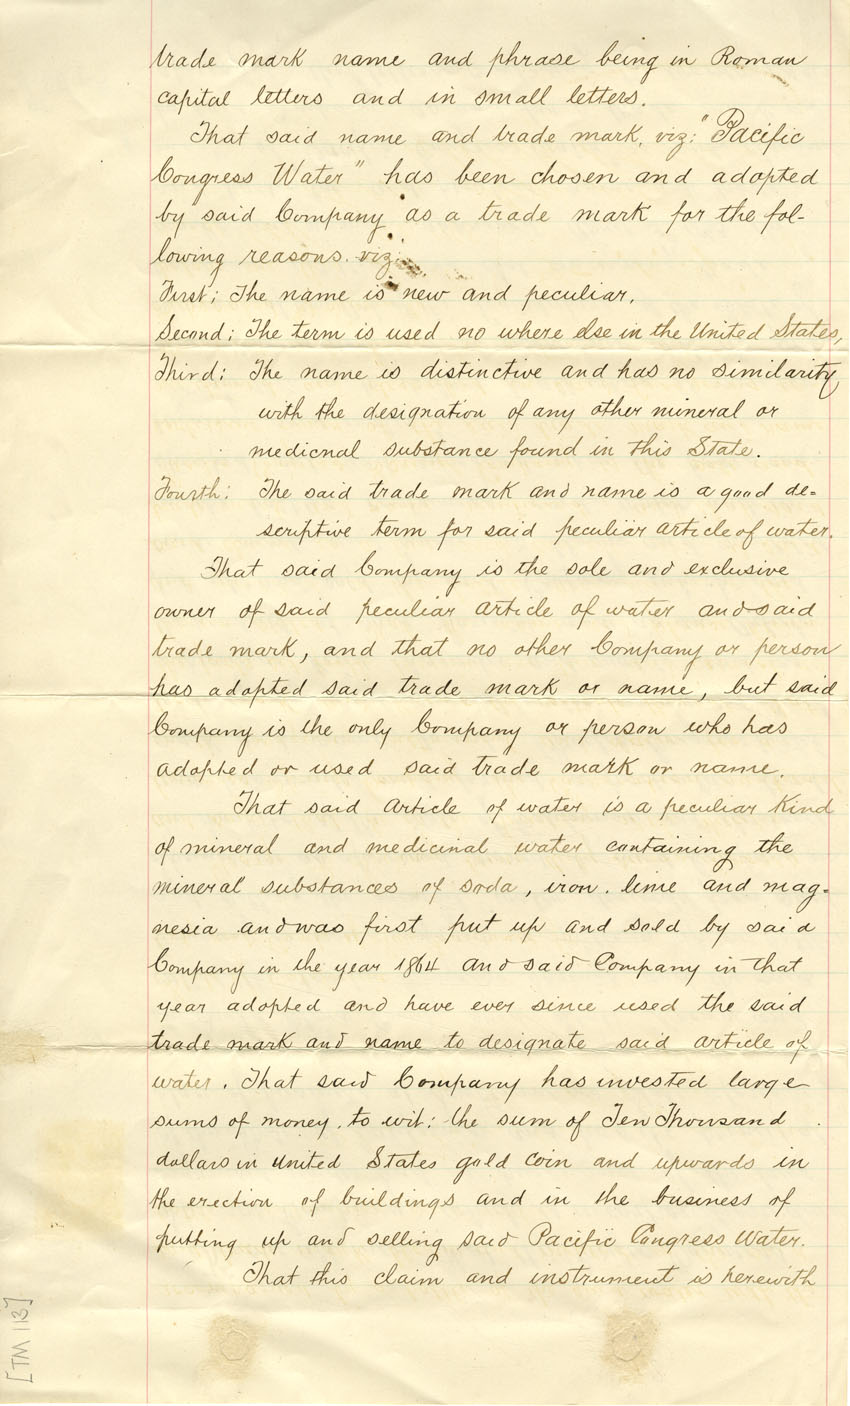 trade mark name and phrase being in Roman
capital letters and in small letters.
That said name and trade mark, viz: "Pacific
Congress Water" has been chosen and adopted
by said Company as a trade mark for the fol-
lowing reasons. viz:
First; The name is new and peculiar.
Second; The term is used no where else in the United States,
Third: The name is distinctive and has no similarity
with the designation of any other mineral or
medicnal substance found in this State.
Fourth: The said trade mark and name is a good de=
scriptive term for said peculiar article of water.
That said Company is the sole and exclusive
owner of said peculiar article of water and said
trade mark, and that no other Company or person
has adopted said trade mark or name, but said
Company is the only Company or person who has
adopted or used said trade mark or name.
That said article of water is a peculiar kind
of mineral and medicinal water containing the
mineral substances of soda, iron. lime and mag-
nesia and was first put up and sold by said
Company in the year 1864 and said Company in that
year adopted and have ever since used the said
trade mark and name to designate said article of
water. That said Company has invested large
sums of money, to wit: the sum of Ten Thousand
dollars in United States gold coin and upwards in
the erection of buildings and in the business of
putting up and selling said Pacific Congress Water.
That this claim and instrument is herewith
[TM 113]